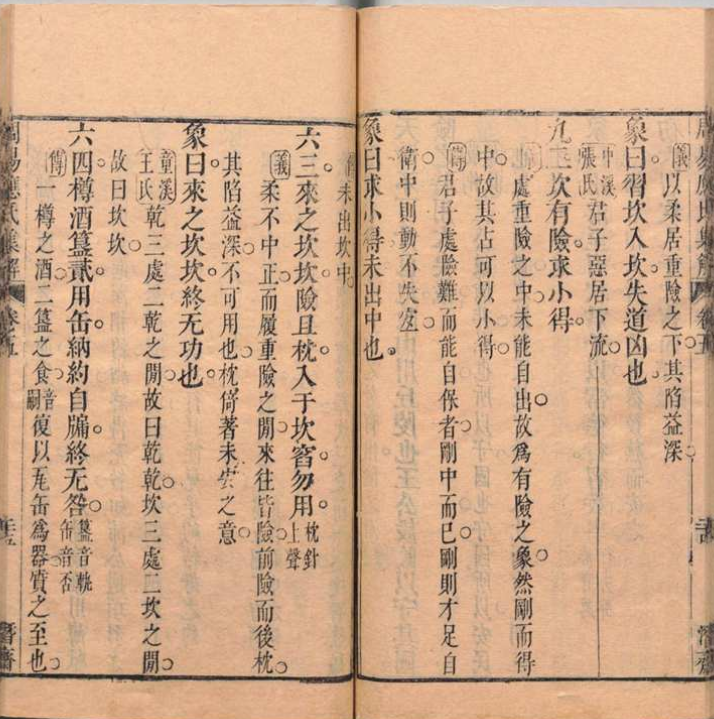 周易應氏集解 卷五 潛齋
義 以柔居重險之下其陷益深
象曰習坎入坎失道凶也
中溪張氏 君子惡居下流
九二坎有險求小得
處重險之中未能自出故爲有險之象然剛而得
中故其占可以小得
傳 君子處險難而能自保者剛中而已剛則才足自
衛中則動不失宜
象曰求小得未出中也
未出坎中
六三來之坎坎險且枕入于坎窞勿用 枕針上聲
義 柔不中正而履重險之閒來往皆險前險而後枕
其陷益深不可用也枕倚著未安之意
象曰來之坎坎終无功也
童溪王氏 乾三處二乾之閒故曰乾乾坎三處二坎之閒
故曰坎坎
六四樽酒簋貳用缶納約自牖終无咎 簋音軌缶音否
傳 一樽之酒二簋之食音嗣復以瓦缶爲器質之至也
周易應氏集解 卷五 潛齋